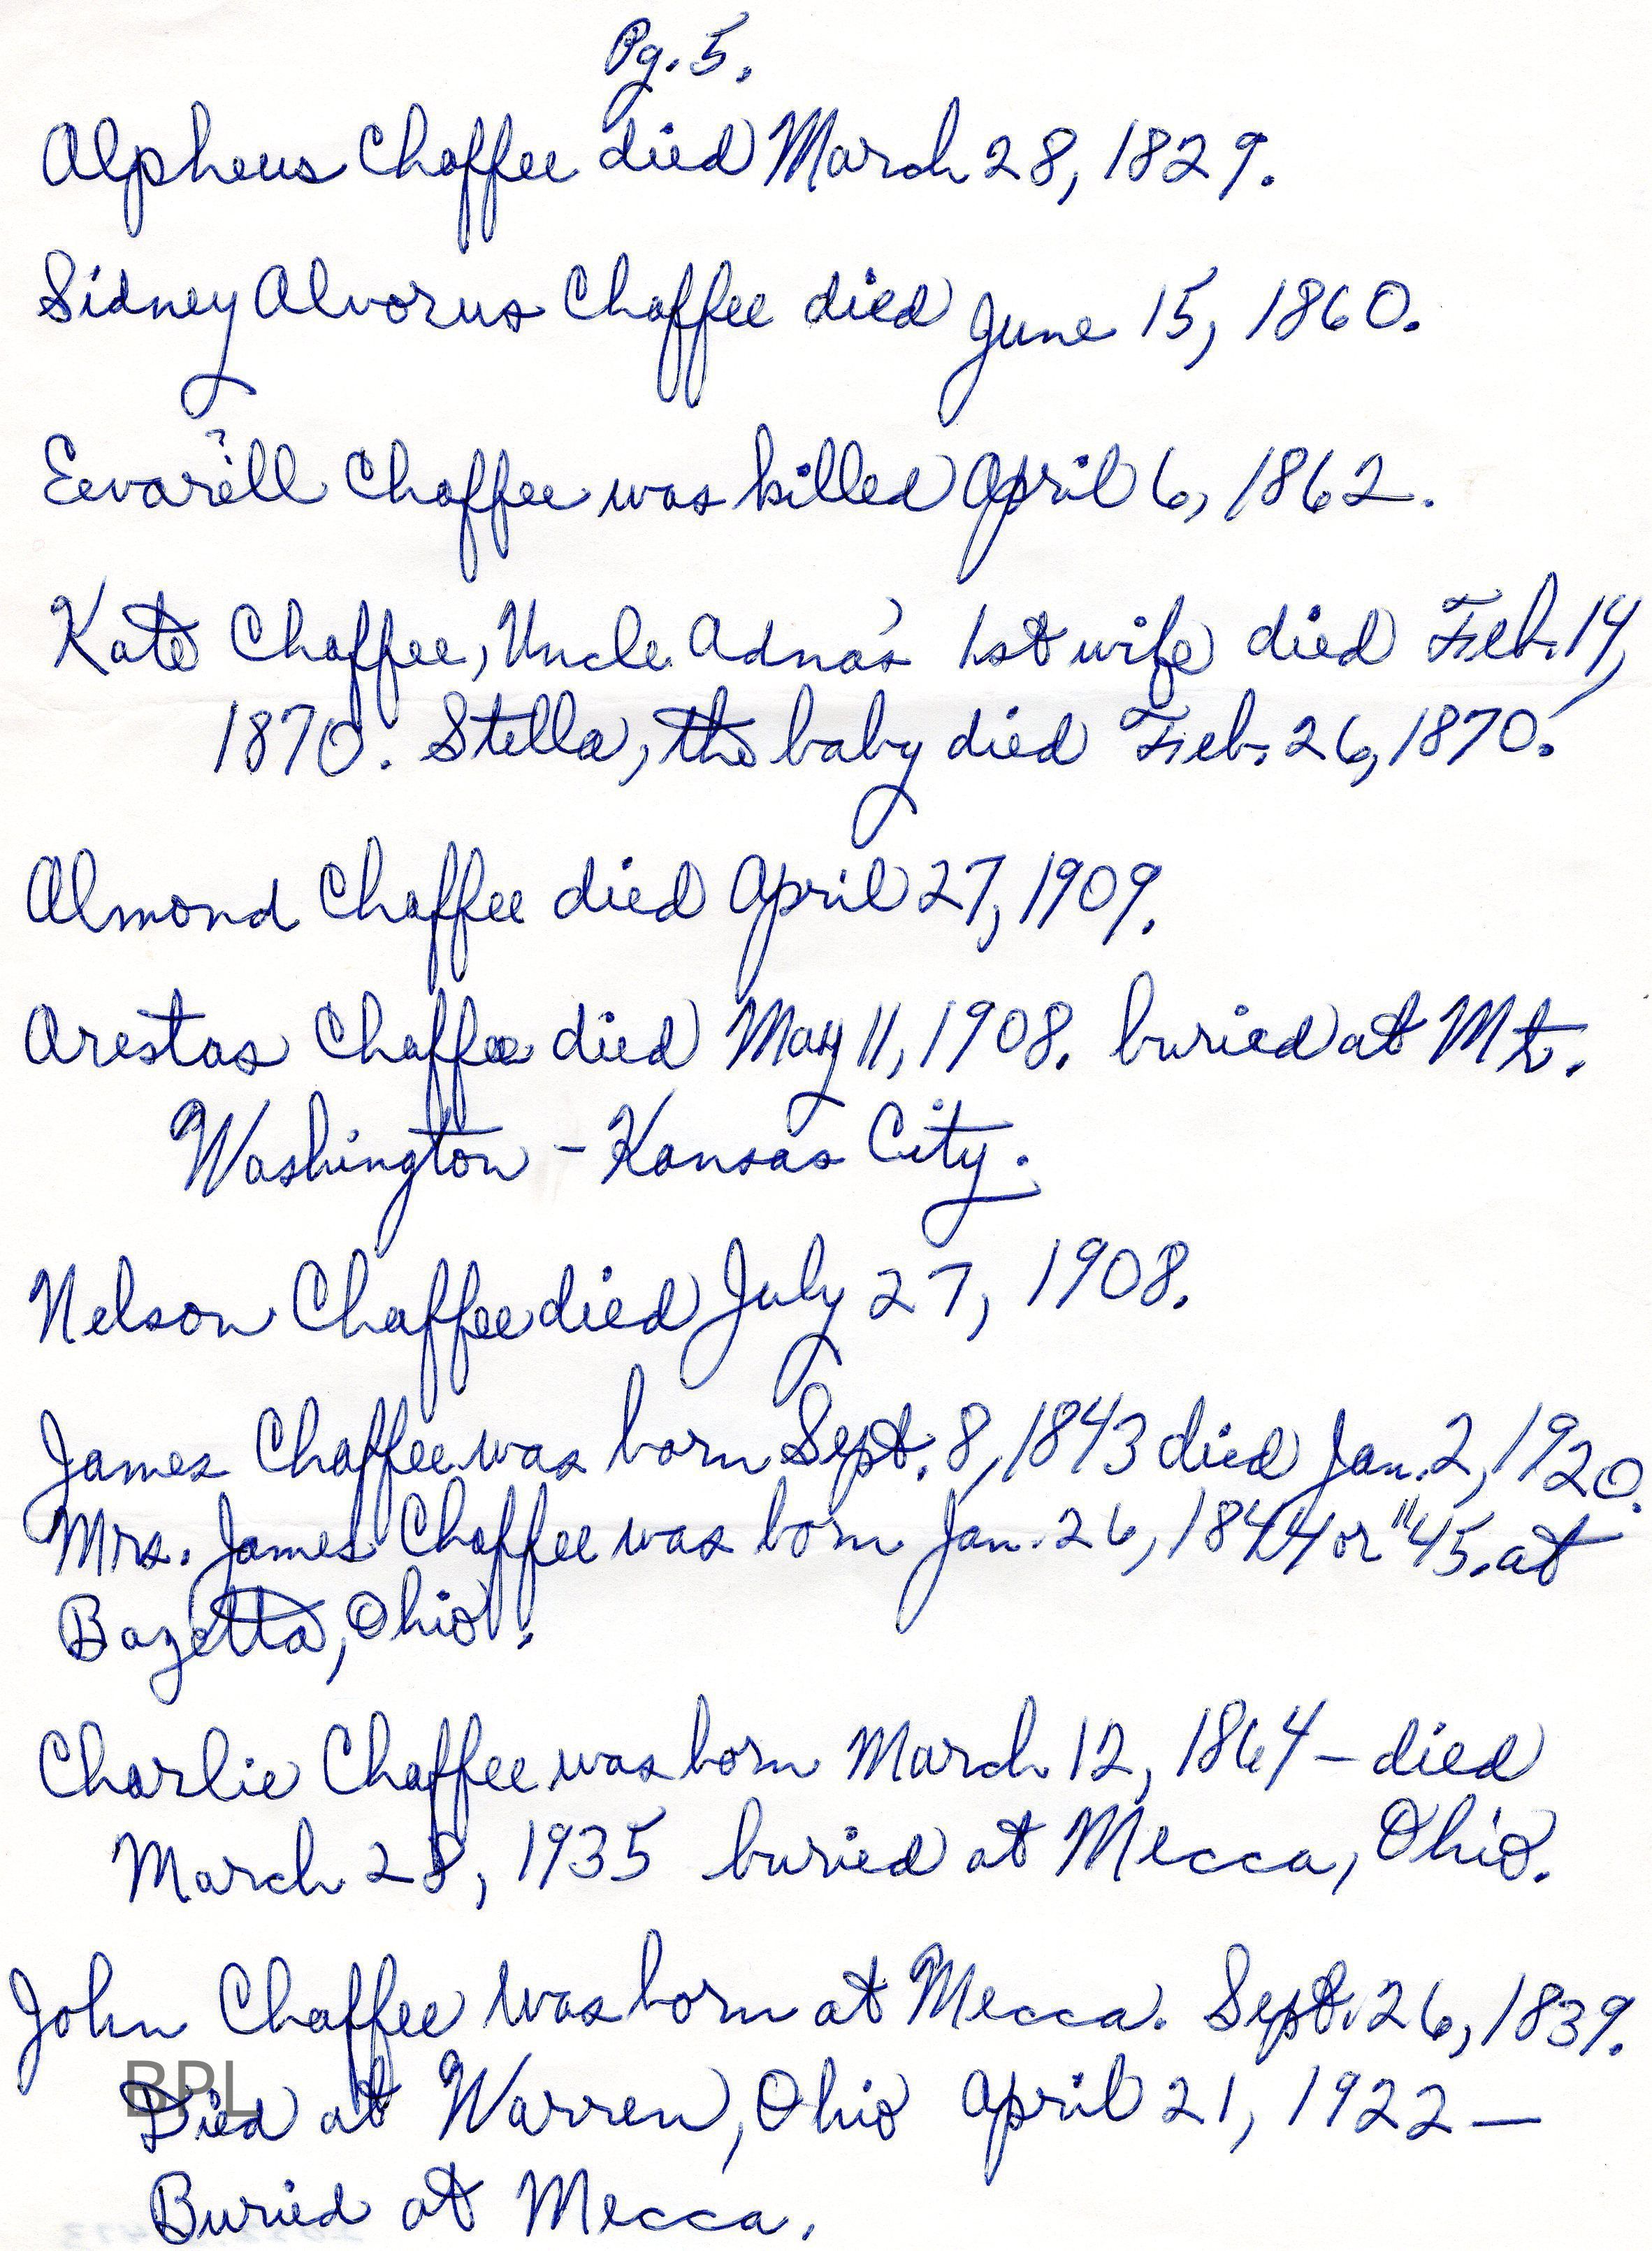 Pg. 5.
Alpheus Chaffee died March 28, 1829.
Sidney Alvorus Chaffee died June 15, 1860.
?
Eevarill Chaffee was killed April 6, 1862.
Kate Chaffee, Uncle Adna's 1st wife died Feb. 14,
1870. Stella, the baby died Feb. 26, 1870.
Almond Chaffee died April 27, 1909.
Arestas Chaffee died May 11, 1908. buried at Mt.
Washington - Kansas City.
Nelson Chaffee died July 27, 1908.
James Chaffee was born Sept. 8, 1843 died Jan. 2, 1920.
Mrs. James Chaffee was born Jan. 26, 1844 or "45. at
Bazetta, Ohio.
Charlie Chaffee was born March 12, 1864 - died
March 28, 1935 buried at Mecca, Ohio.
John Chaffee was born at Mecca. Sept. 26, 1839.
BPL
Died at Warren, Ohio April 21, 1922 —
Buried at Mecca.